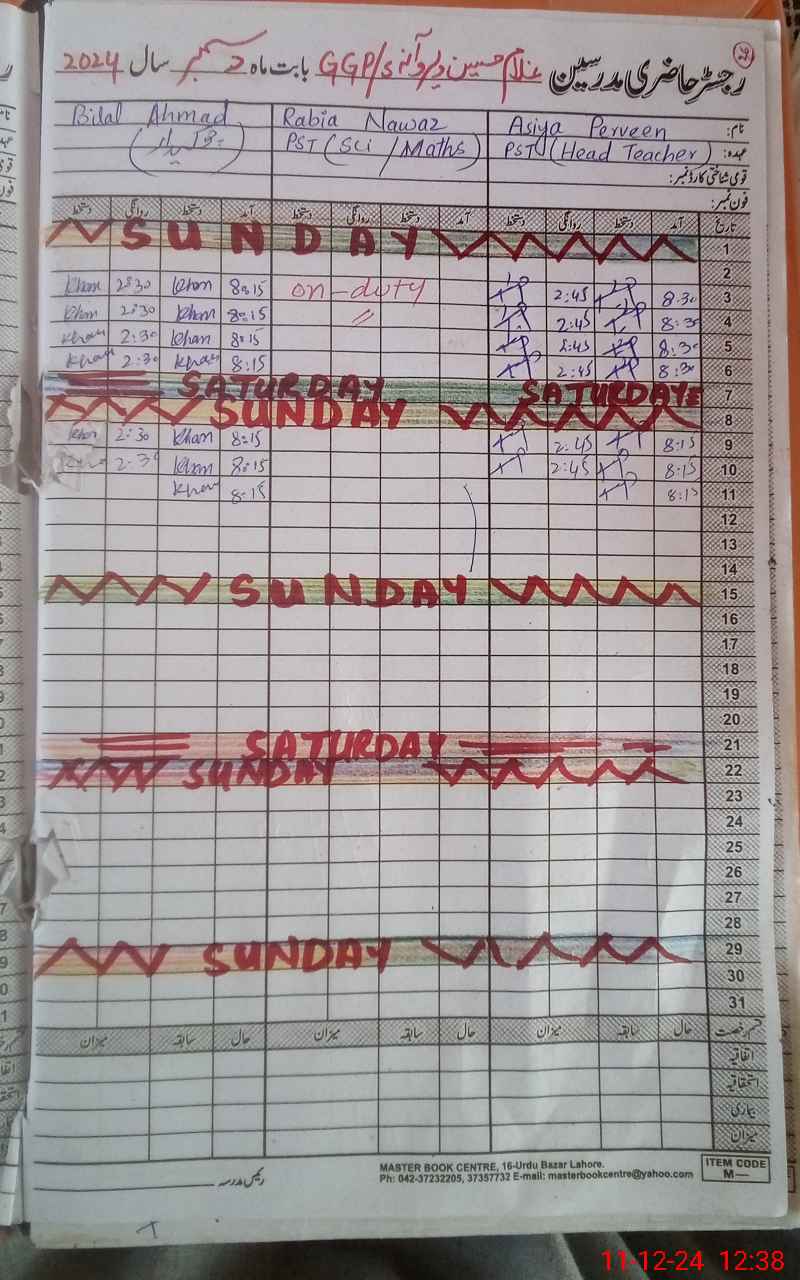 رجسٹر حاضری مدرسین غلام حسین دیروآنہ GGP/S بابت ماہ دسمبر سال 2024
نام: Asiya Perveen Rabia Nawaz Bilal Ahmad
عہدہ: PST (Head Teacher) PST (Sci / Maths)
قومی شناختی کارڈ نمبر:
فون نمبر:
تاریخ آمد دستخط روانگی دستخط آمد دستخط روانگی دستخط آمد دستخط روانگی دستخط
1 SUNDAY
2
3 8:30 2:45 on-duty 8:15 Khan 2:30 Khan
4 8:30 2:45 〃 8:15 Khan 2:30 Khan
5 8:30 2:45 8:15 Khan 2:30 Khan
6 8:30 2:45 8:15 Khan 2:30 Khan
7 SATURDAY SATURDAY
8 SUNDAY
9 8:15 2:45 8:15 Khan 2:30 Khan
10 8:15 2:45 8:15 Khan 2:30
11 8:15 8:15 Khan
12
13
14
15 SUNDAY
16
17
18
19
20
21 SATURDAY
22 SUNDAY
23
24
25
26
27
28
29 SUNDAY
30
31
قسم رخصت حال سابقہ میزان حال سابقہ میزان حال سابقہ میزان
اتفاقیہ
استحقاقیہ
بیماری
میزان
رئیس مدرسہ
MASTER BOOK CENTRE, 16-Urdu Bazar Lahore.
Ph: 042-37232205, 37357732 E-mail: masterbookcentre@yahoo.com
ITEM CODE
M—
11-12-24 12:38